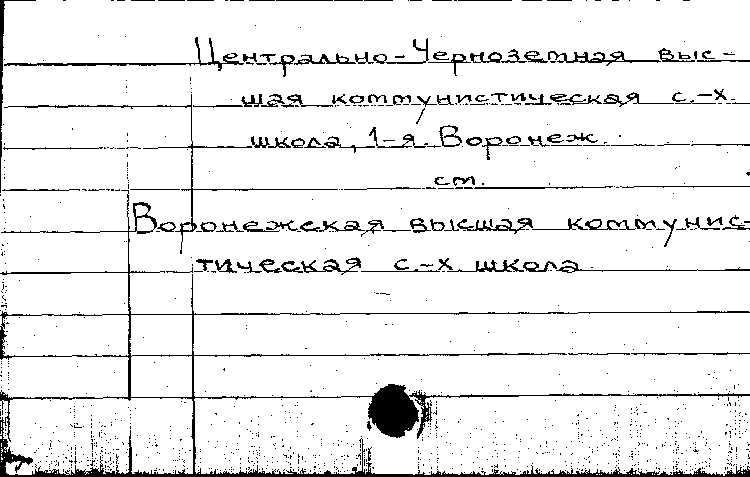 Центрально-Черноземная выс-
шая коммунистическая с.-х.
школа, 1-я. Воронеж.
см.
Воронежская высшая коммунис-
тическая с.-х. школа